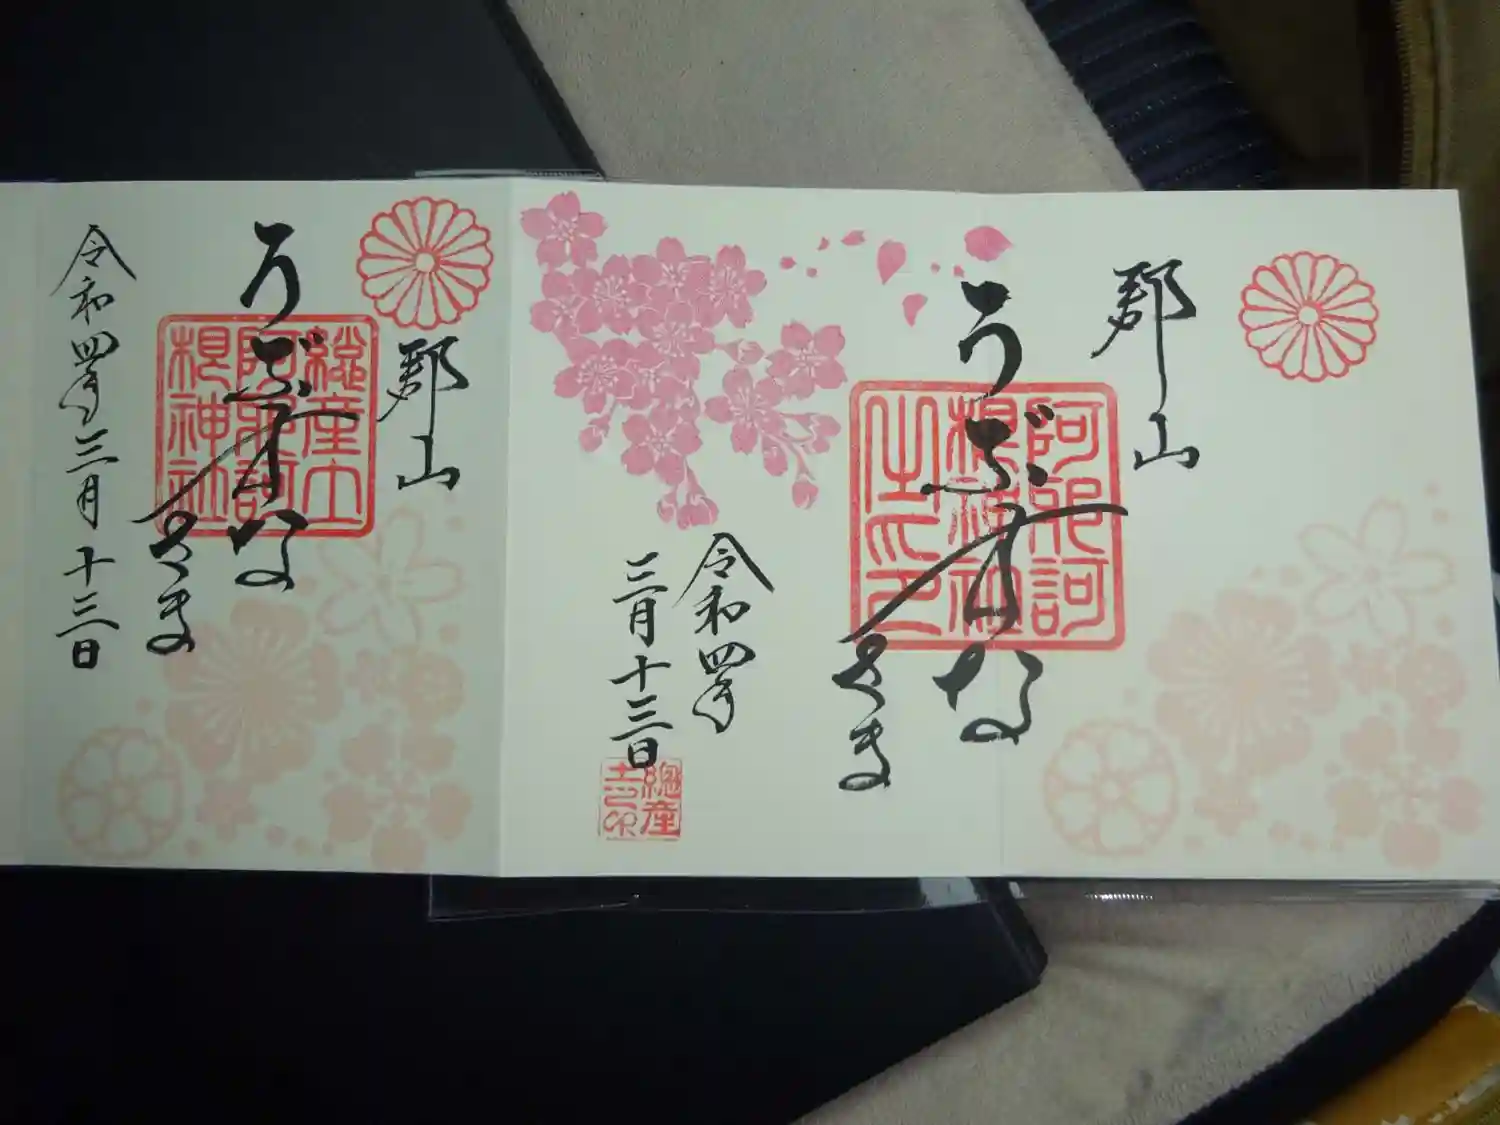 郡山
うぶすな
さま
阿邪訶
根神社
之印
令和四年
三月十三日
總産
土印
郡山
うぶすな
さま
總産土
阿邪訶
根神社
令和四年三月十三日